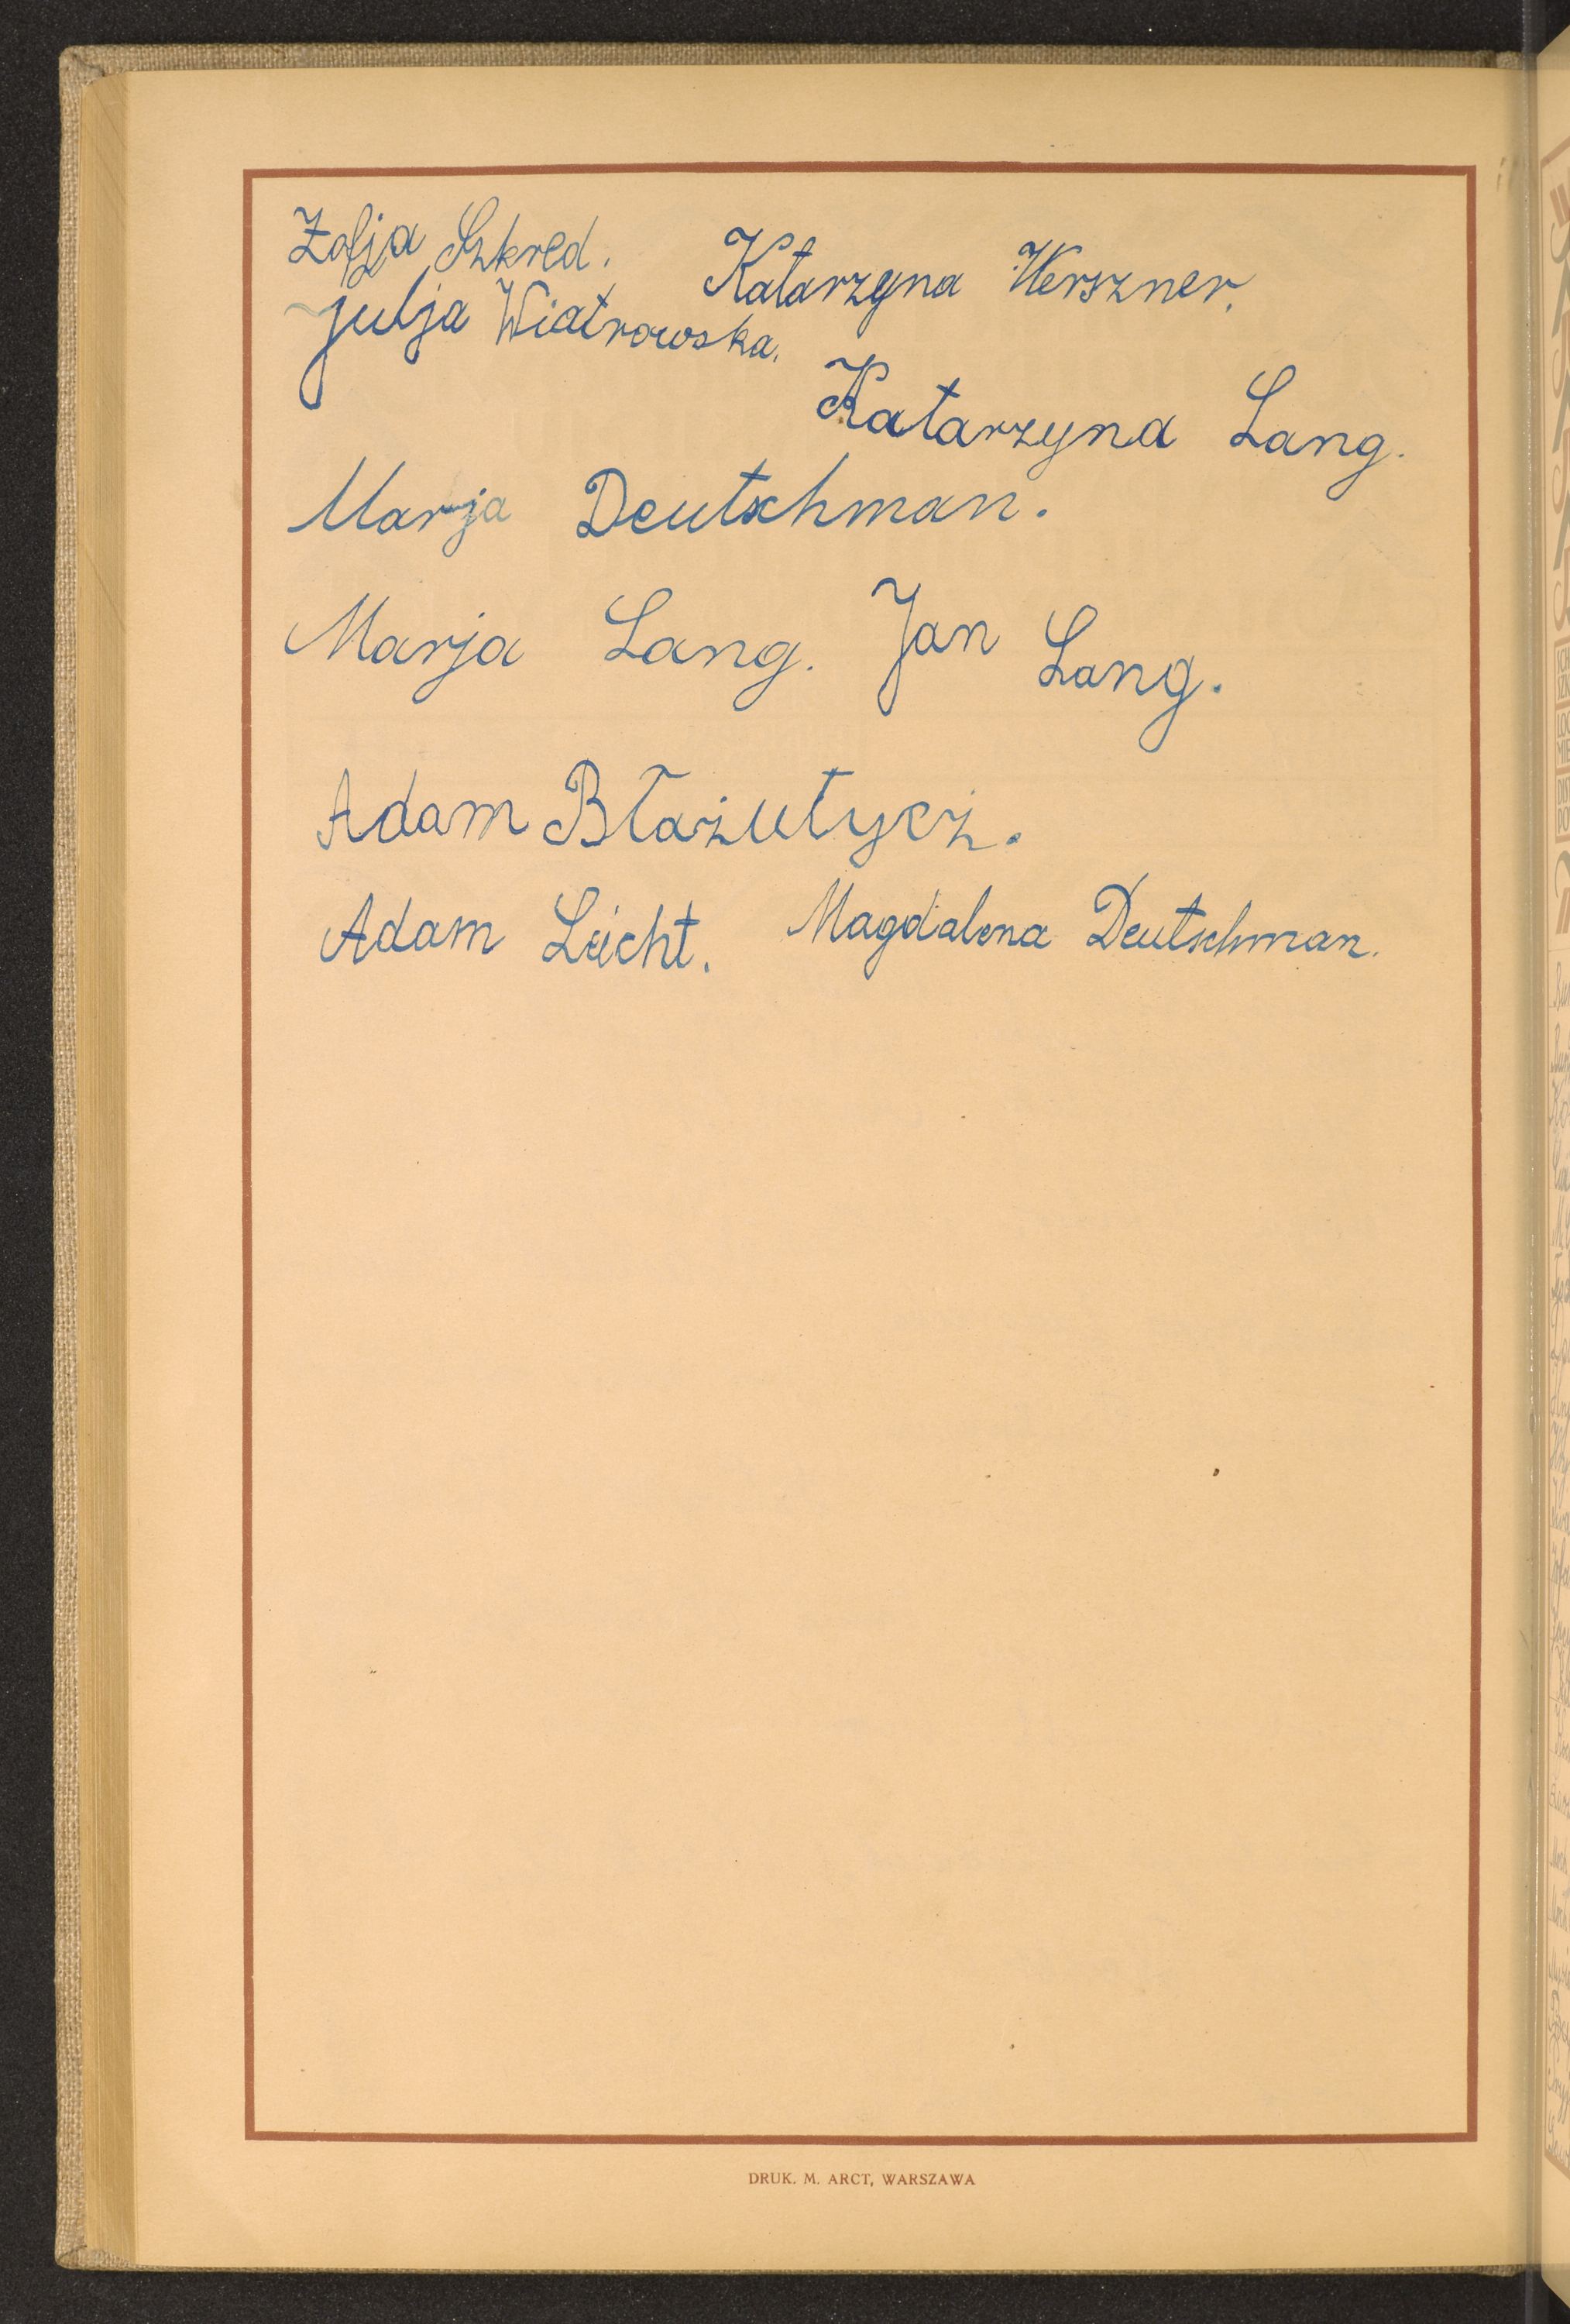 Zofja Szkred. Katarzyna Werszner.
Julja Wiatrowska.
Katarzyna Lang.
Marja Deutschman.
Marja Lang. Jan Lang.
Adam Błażutycz.
Adam Leicht. Magdalena Deutschman.
DRUK. M. ARCT, WARSZAWA